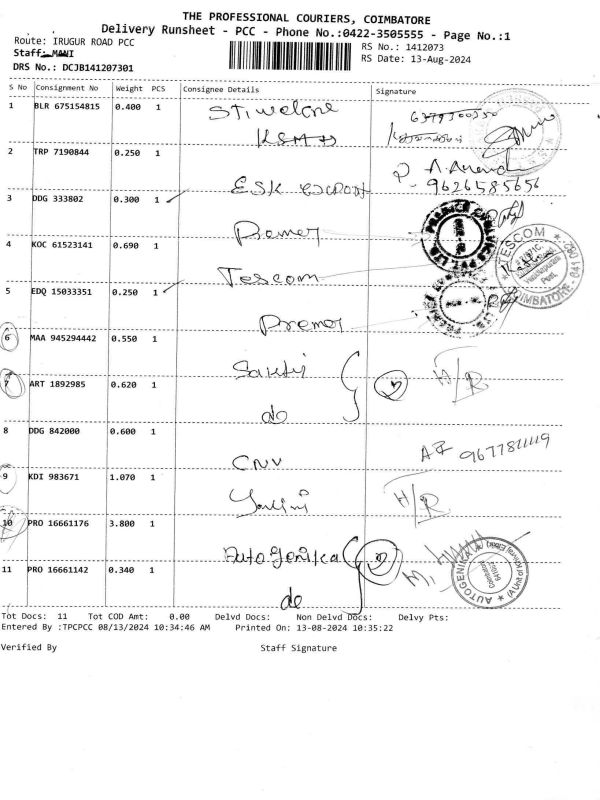 THE PROFESSIONAL COURIERS, COIMBATORE
Delivery Runsheet - PCC - Phone No.:0422-3505555 - Page No.:1
Route: IRUGUR ROAD PCC
RS No.: 1412073
Staff: MANI
RS Date: 13-Aug-2024
DRS No.: DCJB141207301
S No Consignment No Weight PCS Consignee Details Signature
1 BLR 675154815 0.400 1
2 TRP 7190844 0.250 1 ESK
9626585656
3 DDG 333802 0.300 1 Premer
4 KOC 61523141 0.690 1 Tescom
TESCOM
COIMBATORE - 641 062
5 EDQ 15033351 0.250 1 Premer
6 MAA 945294442 0.550 1 H/R
7 ART 1892985 0.620 1 do
8 DDG 842000 0.600 1 CNV
9 KDI 983671 1.070 1 H/R
10 PRO 16661176 3.800 1 Autogenika
AUTOGENIKA
11 PRO 16661142 0.340 1 do
Tot Docs: 11 Tot COD Amt: 0.00 Delvd Docs: Non Delvd Docs: Delvy Pts:
Entered By :TPCPCC 08/13/2024 10:34:46 AM Printed On: 13-08-2024 10:35:22
Verified By Staff Signature